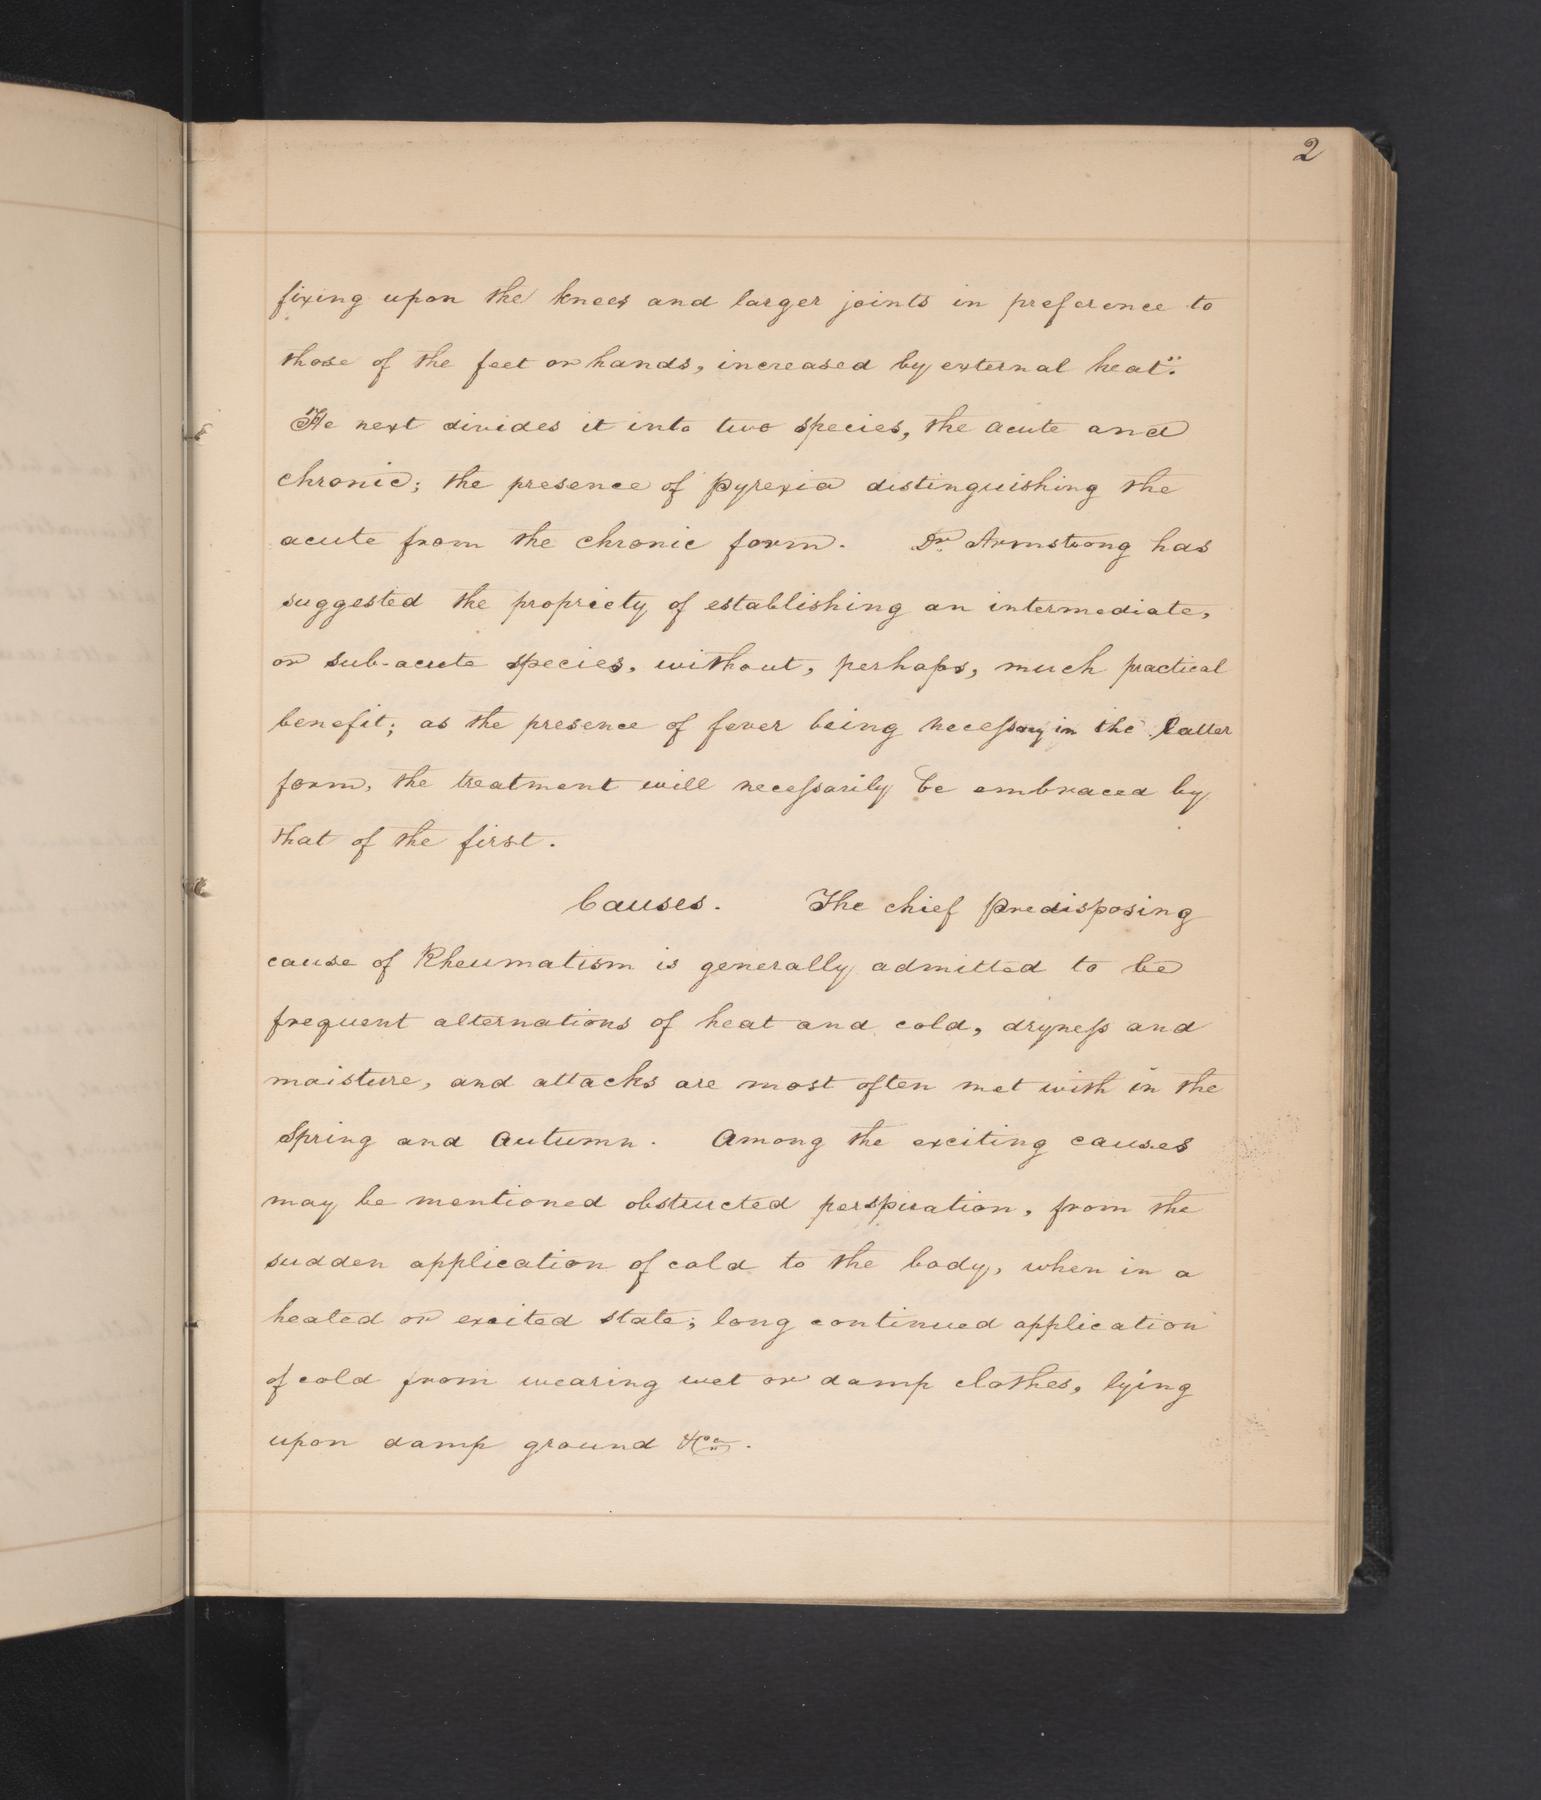 2
fixing upon the knees and larger joints in preference to
those of the feet or hands, increased by external heat."
He next divides it into two species, the acute and
chronic; the presence of pyrexia distinguishing the
acute from the chronic form. Dr. Armstrong has
suggested the propriety of establishing an intermediate,
or sub-acute species, without, perhaps, much practical
benefit; as the presence of fever being necessary in the latter
form, the treatment will necessarily be embraced by
that of the first.
Causes. The chief predisposing
cause of Rheumatism is generally admitted to be
frequent alternations of heat and cold, dryness and
moisture, and attacks are most often met with in the
Spring and Autumn. Among the exciting causes
may be mentioned obstructed perspiration, from the
sudden application of cold to the body, when in a
heated or excited state; long continued application
of cold from wearing wet or damp clothes, lying
upon damp ground &ca.